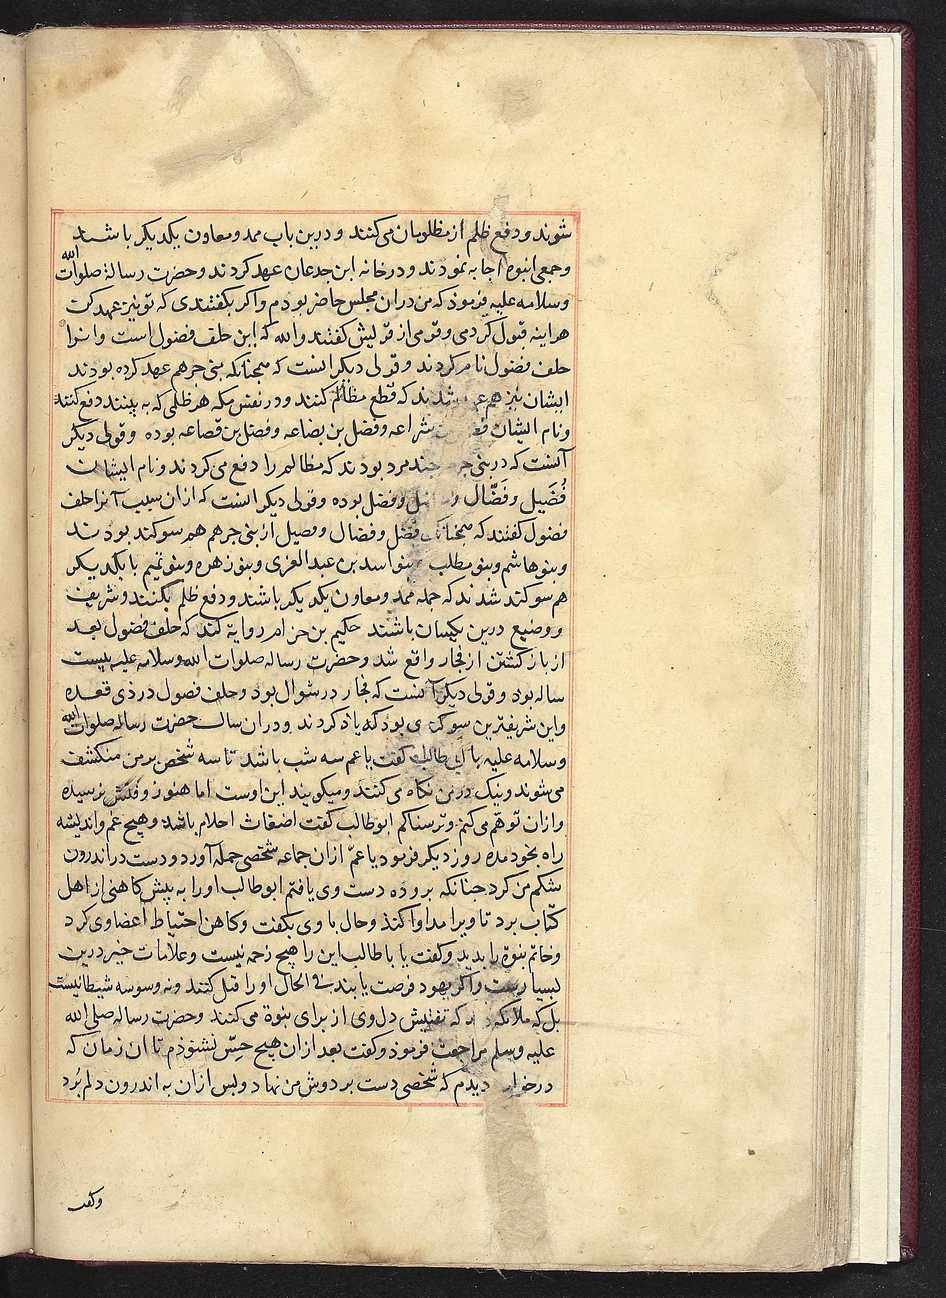 شوند و دفع ظلم از مظلومان می کنند و درین باب ممد و معاون یکدیکر باشند
و جمعی انبوه اجابه نمودند و در خانه ابن جدعان عهد کردند و حضرت رسالة صلوات الله
و سلامه علیه فرموذ که من دران مجلس حاضر بودم و اکر بکفتندی که تو نیز عهد کن
هراینه قبول کردمی و قومی از قریش کفتند والله که این حلف فضول است و انرا
حلف فضول نام کردند و قولی دیکر انست که همجنانکه بنی جرهم عهد کرده بودند
ایشان نیز هم شدند که قطع مظالم کنند و در نفس مکه هر ظلمی که به بینند دفع کنند
و نام ایشان شراعه و فضل بن بضاعه و فضل بن قضاعه بوده و قولی دیکر
آنست که در بنی جند مرد بودند که مظالم را دفع می کردند و نام ایشان
فُضَیل و فَضّال و فضل بوده و قولی دیکر انست که ازان سبب آنرا حلف
فضول کفتند که فضل و فضال و فضیل از بنی جرهم هم سوکند بودند
و بنو هاشم و بنو مطلب و بنو اسد بن عبد العزی و بنو زهره و بنو تمیم با یکدیکر
هم سوکند شدند که جمله ممد و معاون یکدیکر باشند و دفع ظلم بکنند و شریف
و وضیع درین یکسان باشند حکیم بن حزام روایة کند که حلف فضول بعد
از باز کشتن از فجار واقع شد و حضرت رساله صلوات الله و سلامه علیه بیست
ساله بود و قولی دیکر آنست که فجار در شوال بود و حلف فضول در ذی قعده
و این شریفترین سوکندی بود که یاد کردند و دران سال حضرت رساله صلوات الله
و سلامه علیه با ابی طالب کفت یا عم سه شب باشد تا سه شخص بر من منکشف
می شوند و نیک در من نکاه می کنند و میکویند این اوست اما هنوز وقتش نرسیده
و ازان توهم می کنم و ترسناکم ابو طالب کفت اضغاث احلام باشد و هیچ غم و اندیشه
راه بخود مده روز دیکر فرمود یا عمّ ازان جماعه شخصی حمله آورد و دست در اندرون
شکم من کرد جنانکه برودة دست وی یافتم ابو طالب او را به پیش کاهنی از اهل
کتاب برد تا ویرا مداوا کند و حال با وی بکفت و کاهن احتیاط اعضا وی کرد
و خاتم نبوّه را بدید و کفت یا با طالب این را هیچ زحمه نیست و علامات خیر درین
بسیارست و اکر یهود فرصت یابند فی الحال او را قتل کنند و نه وسوسه شیطانیست
بل که ملائکه که تفتیش دل وی از برای نبوة می کنند و حضرت رساله صلی الله
علیه و سلم مراجعت فرموذ و کفت بعد ازان هیچ حِسّ نشنوذم تا ان زمان که
در دیدم که شخصی دست بر دوش من نهاد و بس ازان به اندرون دلم بُرد
وکفت